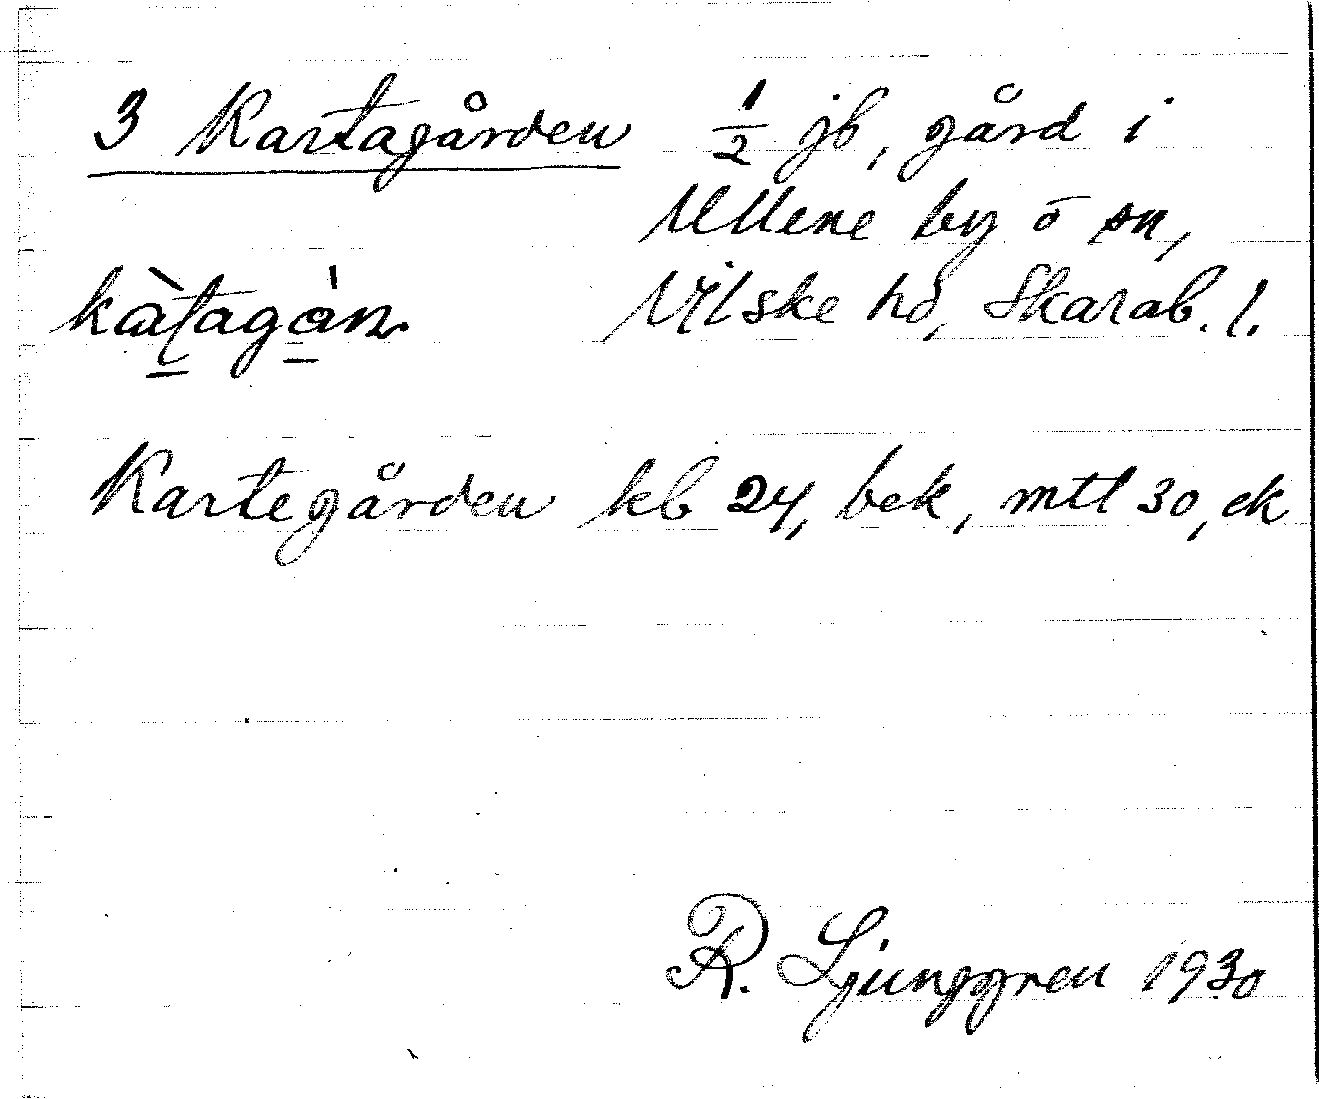 3 Kartagården ½ jb, gård i
Ullene by o sn,
kàtagån. Vilske hd, Skarab. l.
Kartegården kb 24, bek, mtl 30, ek
R. Ljunggren 1930